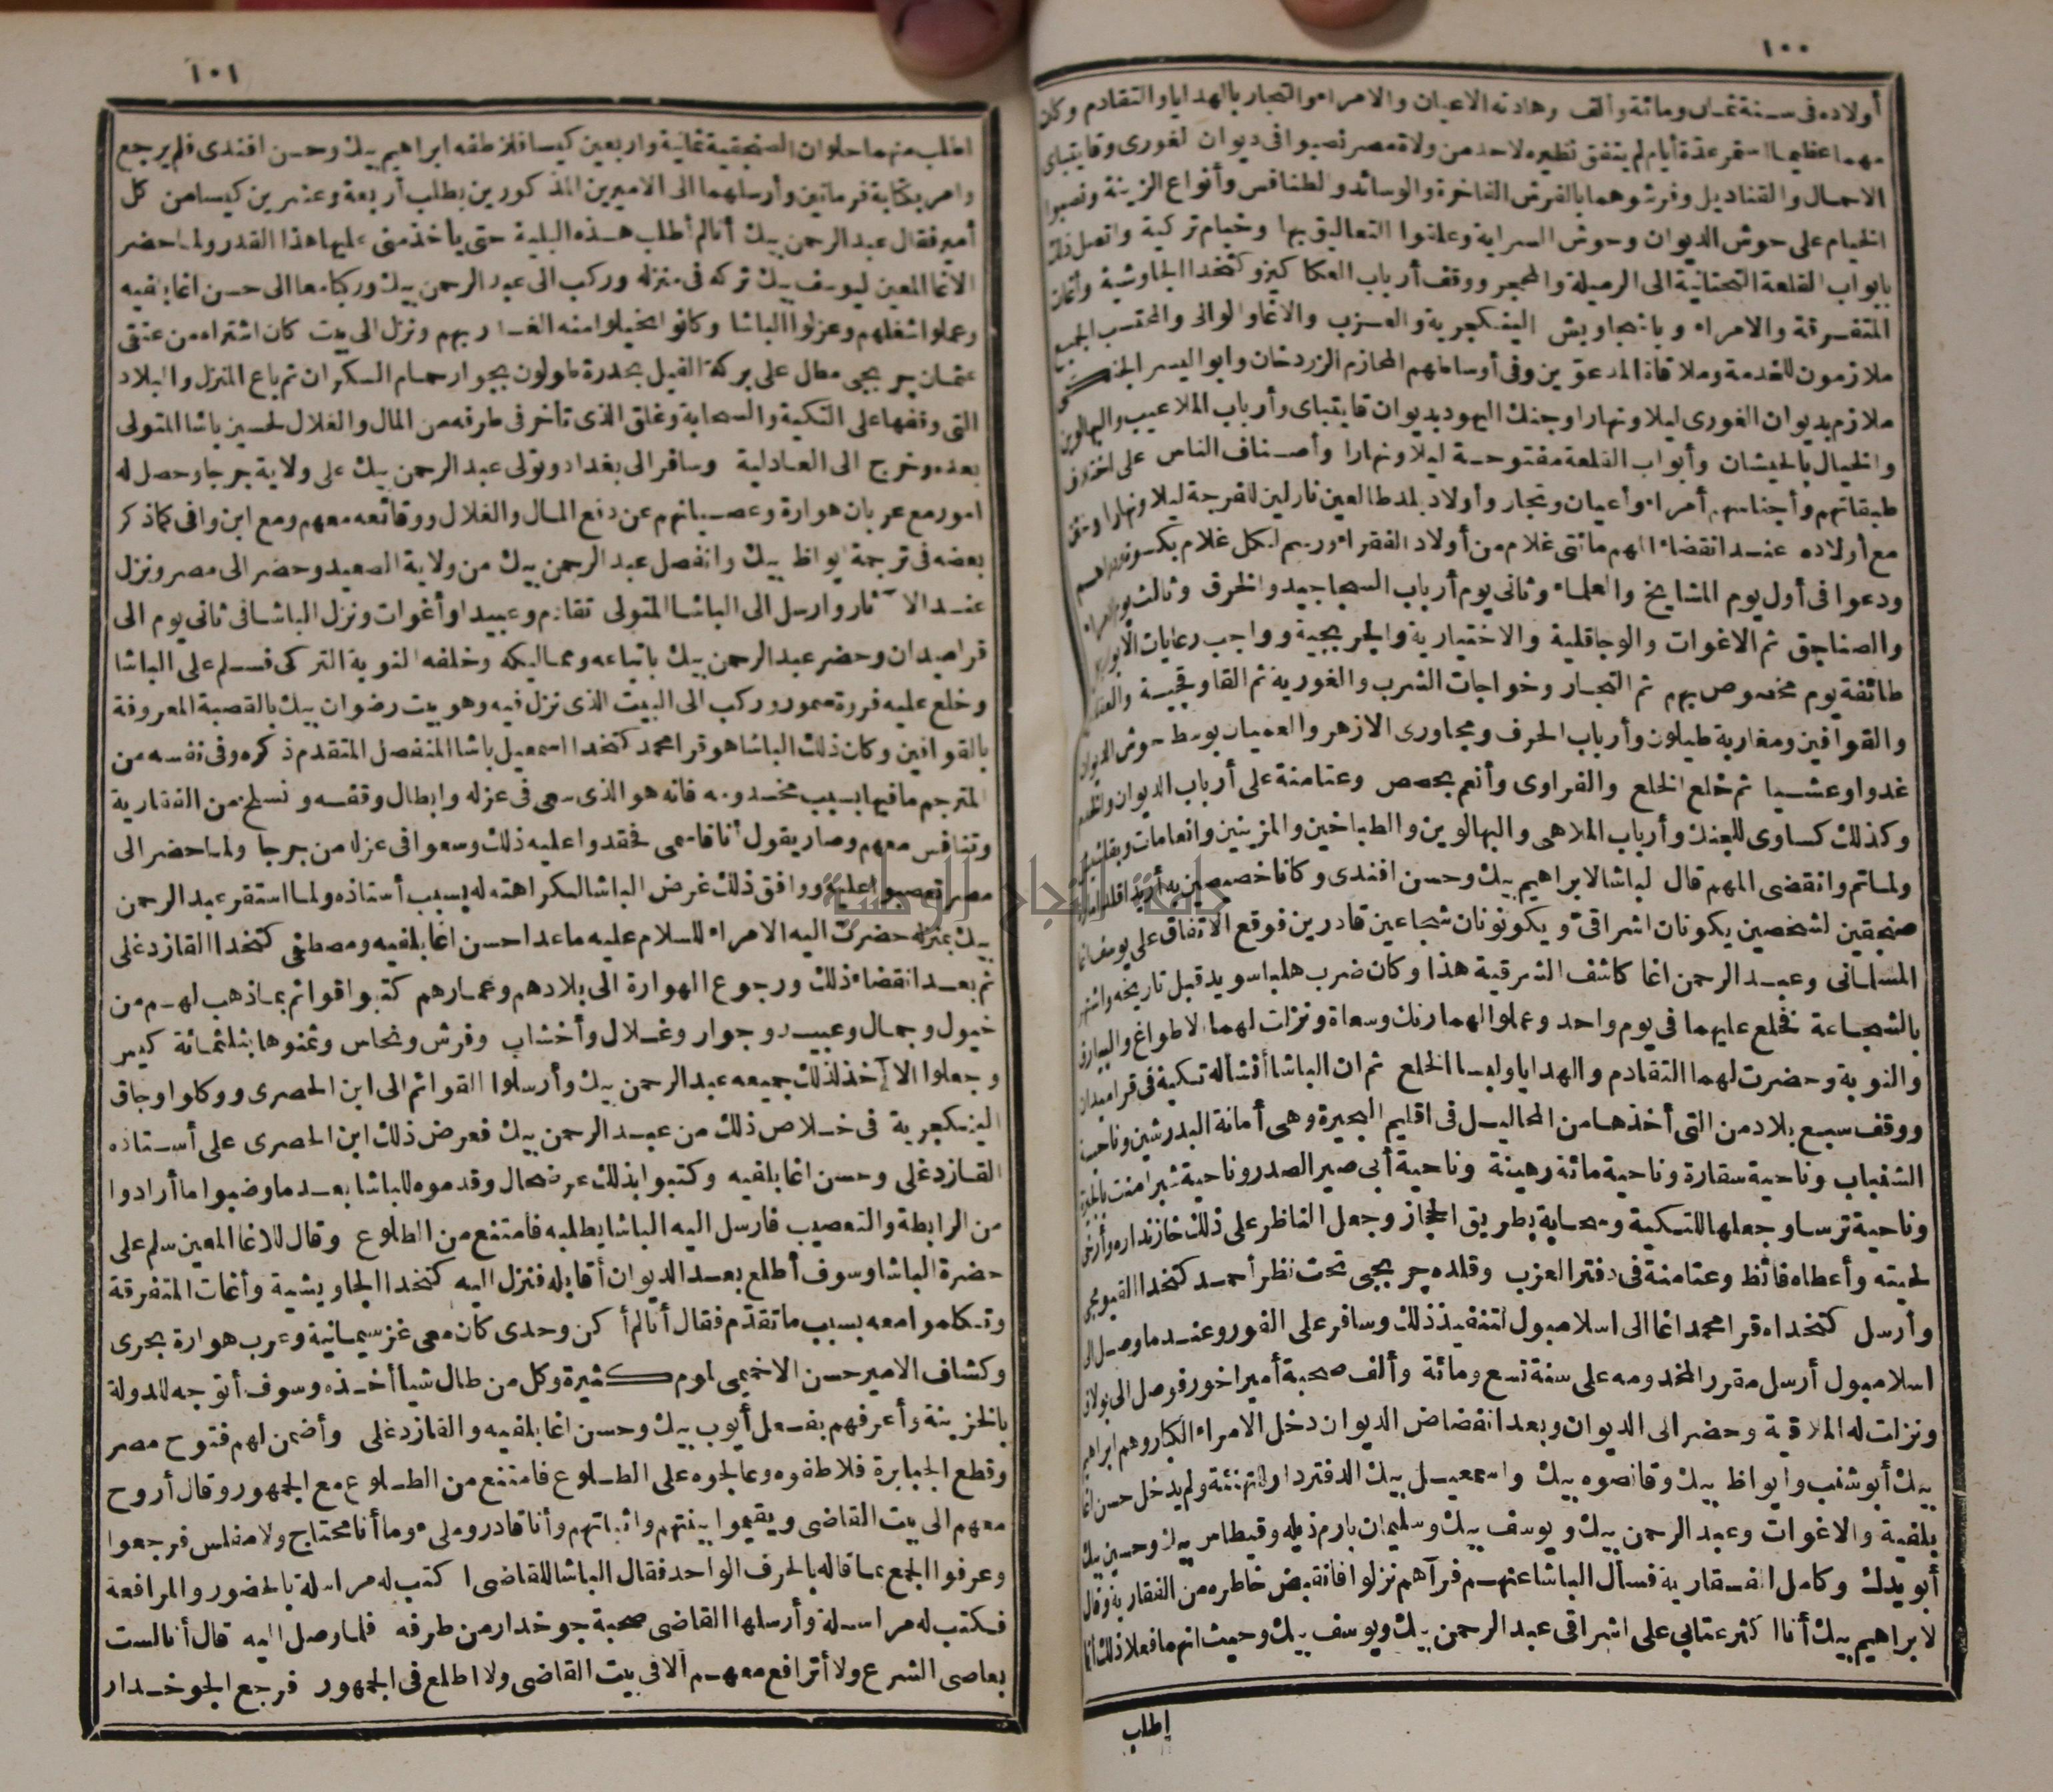 ١٠٠
أولاده فى سنة ثمان ومائة وألف وهادته الاعيان والامراء والتجار بالهدايا والتقادم وكان
مهما عظيما استمر عدة أيام لم يتفق نظيره لاحد من ولاة مصر نصبوا فى ديوان الغورى وقايتباى
الاحمال والقناديل وفرشوهما بالفرش الفاخرة والوسائد والطنافس وأنواع الزينة ونصبوا
الخيام على حوش الديوان وحوش السراية وعلقوا التعاليق بها وخيام تركية واتصل ذلك
بابواب القلعة التحتانية الى الرميلة والمحجر ووقف أرباب العكاكيز وكتخدا الجاوشية وأغات
المتفرقة والامراء وباشجاويش الينكجرية والعزب والاغا والوالى والمحتسب الجميع
ملازمون للخدمة وملاقاة المدعوين وفى أوساطهم المحازم الزردخان وابو اليسر الجنكى
ملازم بديوان الغورى ليلا ونهارا وجنك اليهود بديوان قايتباى وأرباب الملاعيب والبهالوين
والخيال بالحيشان وأبواب القلعة مفتوحة ليلا ونهارا وأصناف الناس على اختلاف
طبقاتهم وأجناسهم أمراء وأعيان وتجار وأولاد بلد طالعين نازلين للفرجة ليلا ونهارا وختن
مع أولاده عند انقضاء المهم مائتى غلام من أولاد الفقراء ورسم لكل غلام بكسوة ودراهم
ودعوا فى أول يوم المشايخ والعلماء وثانى يوم أرباب السجاجيد والخرق وثالث يوم الامراء
والصناجق ثم الاغوات والوجاقلية والاختيارية والجربجية وواجب رعايات الابواب كل
طائفة يوم مخصوص بهم ثم التجار وخواجات الشرب والغورية ثم القاوقجية
والقوافين ومغاربة طيلون وأرباب الحرف ومجاورى الازهر والعميان بوسط حوش الديوان
غدوا وعشيا ثم خلع الخلع والفراوى وأنعم بحصص وعثامنة على أرباب الديوان والخدم
وكذلك كساوى للجنك وأرباب الملاهى والبهالوين والطباخين والمزينين وانعامات وبقاشيش
ولما تم وانقضى المهم قال الباشا لابراهيم بيك وحسن افندى وكانا خصيصين به أريد اقلد امارة
صنجقين لشخصين يكونان اشراقى ويكونان شجاعين قادرين فوقع الاتفاق على يوسف اغا
المسلمانى وعبد الرحمن اغا كاشف الشرقية هذا وكان ضرب هلبا سويد قبل تاريخه واشتهر
بالشجاعة فخلع عليهما فى يوم واحد وعملوا لهما رنك وسعاة ونزلت لهما الاطواغ والبيارق
والنوبة وحضرت لهما التقادم والهدايا ولبسا الخلع ثم ان الباشا أنشأ له تكية فى قراميدان
ووقف سبع بلاد من التى أخذها من المحاليل فى اقليم البحيرة وهى أمانة البدرشين وناحية
الشنباب وناحية سقارة وناحية مائة رهينة وناحية أبى صير الصدر وناحية شبرامنت بالجيزة
وناحية ترسا وجعلها للتكية وسحابة بطريق الحجاز وجعل الناظر على ذلك خازنداره وأرخى
لحيته وأعطاه فائظ وعثامنة فى دفتر العزب وقلده جربجى تحت نظر أحمد كتخدا القيومجى
وأرسل كتخداه قرا محمد اغا الى اسلامبول لتنفيذ ذلك وسافر على الفور وعند ما وصل الى
اسلامبول أرسل مقرر المخدومه على سنة تسع ومائة وألف صحبة أمير اخور فوصل الى بولاق
ونزلت له الملاقية وحضر الى الديوان وبعد انقضاض الديوان دخل الامراء الكبار وهم ابراهيم
بيك أبو شنب وايواظ بيك وقانصوه بيك واسمعيل بيك الدفتردار للتهنئة ولم يدخل حسن اغا
بلفية والاغوات وعبد الرحمن بيك ويوسف بيك وسليمان بارم ذيله وقيطاس بيك وحسين بيك
أبو يدك وكامل الفقارية فسأل الباشا عنهم فرآهم نزلوا فانقبض خاطره من الفقارية وقال
لابراهيم بيك أنا أكثر عتابى على اشراقى عبد الرحمن بيك ويوسف بيك وحيث انهما فعلا ذلك انا
اطلب
١٠١
اطلب منهما حلوان الصنجقية ثمانية واربعين كيسا فلاطفه ابراهيم بيك وحسن افندى فلم يرجع
وامر بكتابة فرمانين وأرسلهما الى الاميرين المذكورين بطلب أربعة وعشرين كيسا من كل
أمير فقال عبد الرحمن بيك أنا لم أطلب هذه البلية حتى يأخذ منى عليها هذا القدر ولما حضر
الاغا المعين ليوسف بيك تركه فى منزله وركب الى عبد الرحمن بيك وركبا معا الى حسن اغا بلفيه
وعملوا شغلهم وعزلوا الباشا وكانوا تخيلوا منه الغدر بهم ونزل الى بيت كان اشتراه من عتقى
عثمان جربجى مطل على بركة الفيل بحدرة طولون بجوار حمام السكران ثم باع المنزل والبلاد
التى وقفها على التكية والسحابة وغلق الذى تأخر فى طرفه من المال والغلال لحسين باشا المتولى
بعده وخرج الى العادلية وسافر الى بغداد وتولى عبد الرحمن بيك على ولاية جرجا وحصل له
امور مع عربان هوارة وعصيانهم عن دفع المال والغلال ووقائعه معهم ومع ابن وافى كما ذكر
بعضه فى ترجمة ايواظ بيك وانفصل عبد الرحمن بيك من ولاية الصعيد وحضر الى مصر ونزل
عند الآثار وارسل الى الباشا المتولى تقادم وعبيدا وأغوات ونزل الباشا فى ثانى يوم الى
قراميدان وحضر عبد الرحمن بيك باتباعه ومماليكه وخلفه النوبة التركى فسلم على الباشا
وخلع عليه فروة سمور وركب الى البيت الذى نزل فيه وهو بيت رضوان بيك بالقصبة المعروفة
بالقوافين وكان ذلك الباشا هو قرا محمد كتخدا اسمعيل باشا المنفصل المتقدم ذكره وفى نفسه من
المترجم ما فيها بسبب مخدومه فانه هو الذى سعى فى عزله وابطال وقفه ونسلخ من الفقارية
وتنافس معهم وصار يقول أنا قاسمى فحقدوا عليه ذلك وسعوا فى عزله من جرجا ولما حضر الى
مصر تعصبوا عليه ووافق ذلك غرض الباشا لكراهته له بسبب أستاذه ولما استقر عبد الرحمن
بيك بمنزله حضرت اليه الامراء للسلام عليه ما عدا حسن اغا بلفيه ومصطفى كتخدا القازدغلى
ثم بعد انقضاء ذلك ورجوع الهوارة الى بلادهم وعمارهم كتبوا قوائم بما ذهب لهم من
خيول وجمال وعبيد وجوار وغلال وأخشاب وفرش ونحاس وثمنوها بثلثمائة كيس
وجعلوا الآخذ لذلك جميعه عبد الرحمن بيك وأرسلوا القوائم الى ابن الحصرى ووكلوا وجاق
الينكجرية فى خلاص ذلك من عبد الرحمن بيك فعرض ذلك ابن الحصرى على أستاذه
القازدغلى وحسن اغا بلفيه وكتبوا بذلك عرضحال وقدموه للباشا بعد ما وضبوا ما أرادوا
من الرابطة والتعصيب فارسل اليه الباشا يطلبه فامتنع من الطلوع وقال للاغا المعين سلم على
حضرة الباشا وسوف أطلع بعد الديوان أقابله فنزل اليه كتخدا الجاويشية وأغات المتفرقة
وتكلموا معه بسبب ما تقدم فقال أنا لم أكن وحدى كان معى غز سيمانية وعرب هوارة بحرى
وكشاف الامير حسن الاخميمى لموم كثيرة وكل من طال شيأ أخذه وسوف أتوجه للدولة
بالخزينة وأعرفهم بفعل أيوب بيك وحسن اغا بلفيه والقازدغلى وأضمن لهم فتوح مصر
وقطع الجبابرة فلاطفوه وعالجوه على الطلوع فامتنع من الطلوع مع الجمهور وقال أروح
معهم الى بيت القاضى ويقيموا بينتهم واثباتهم وأنا قادر وملىء وما أنا محتاج ولا مفلس فرجعوا
وعرفوا الجمع بما قاله بالحرف الواحد فقال الباشا للقاضى اكتب له مراسلة بالحضور والمرافعة
فكتب له مراسلة وأرسلها القاضى صحبة جوخدار من طرفه فلما وصل اليه قال أنا لست
بعاصى الشرع ولا أترافع معهم الا فى بيت القاضى ولا اطلع فى الجمهور فرجع الجوخدار